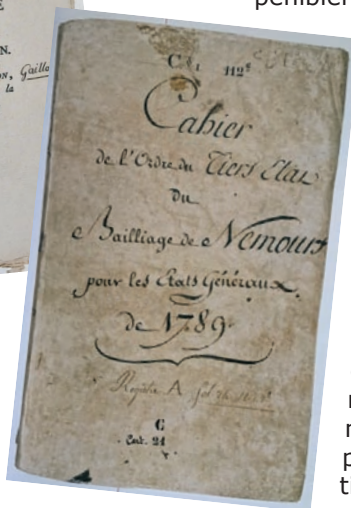 N.
Gaillo
la
C 1 112
Cahier
de l'Ordre du Tiers Etat
du
Bailliage de Nemours
pour les Etats Généraux
de 1789.
Registre A
C
Cart. 21